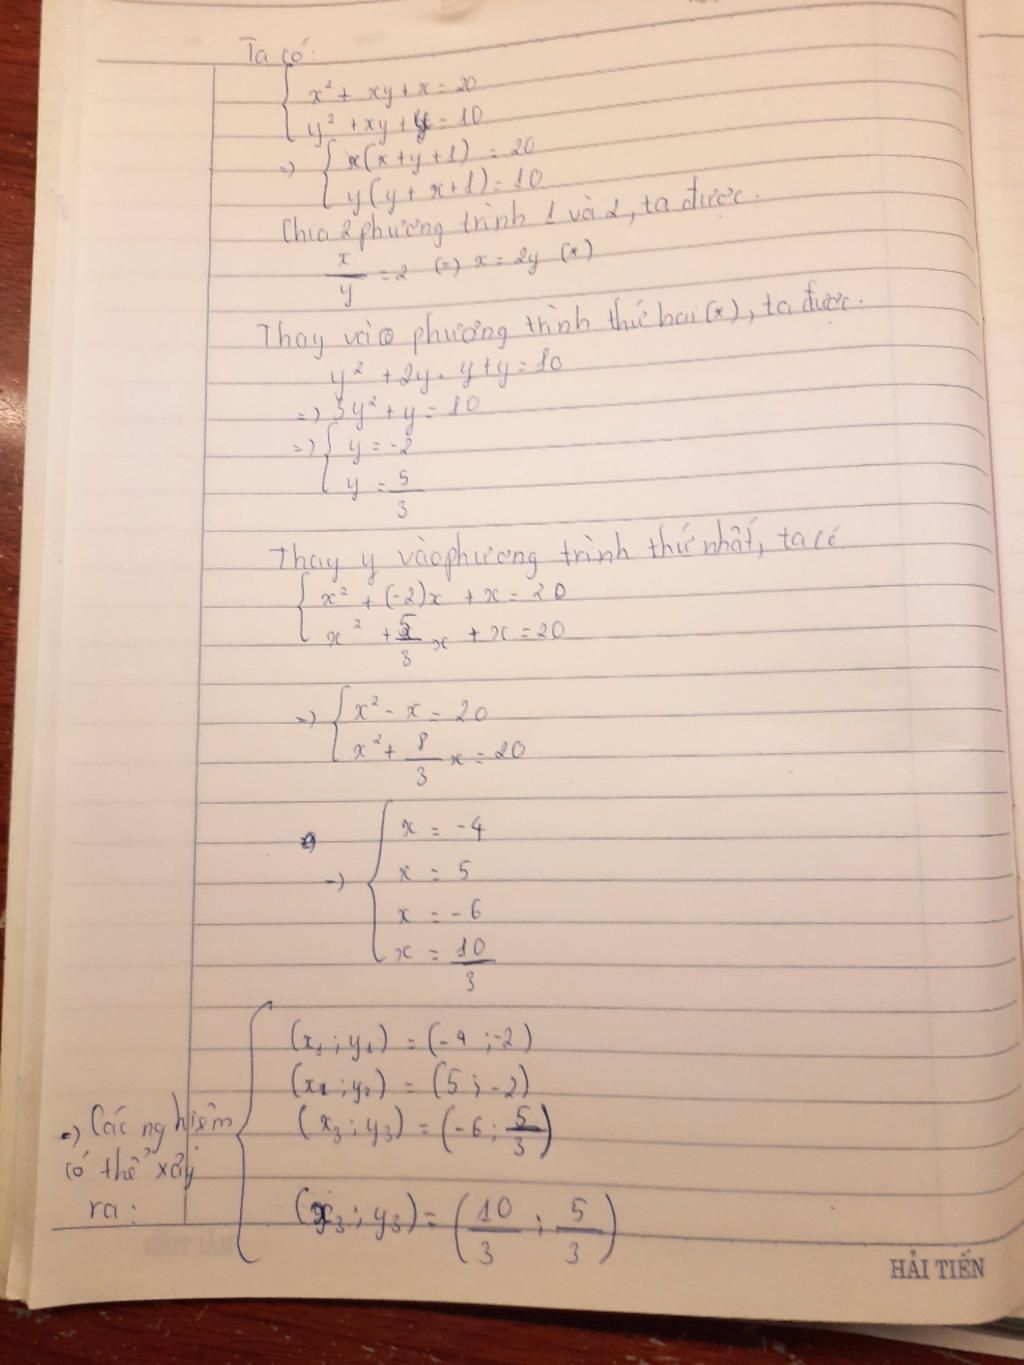 Ta có:
x² + xy + x = 20
y² + xy + y = 10
=) x(x+y+1) = 20
y(y+x+1) = 10
Chia 2 phương trình 1 và 2, ta được.
x/y = 2 (=) x = 2y (*)
Thay vào phương trình thứ hai (*), ta được.
y² + 2y . y + y = 10
=) 3y² + y = 10
=) y = -2
y = 5/3
Thay y vào phương trình thứ nhất, ta có
x² + (-2)x + x = 20
x² + 5/3 x + x = 20
=) x² - x = 20
x² + 8/3 x = 20
x = -4
=) x = 5
x = -6
x = 10/3
(x₁ ; y₁) = (-4 ; -2)
(x₂ ; y₂) = (5 ; -2)
=) Các nghiệm (x₃ ; y₃) = (-6 ; 5/3)
có thể xảy
ra: (x₃ ; y₃) = (10/3 ; 5/3)
HẢI TIẾN